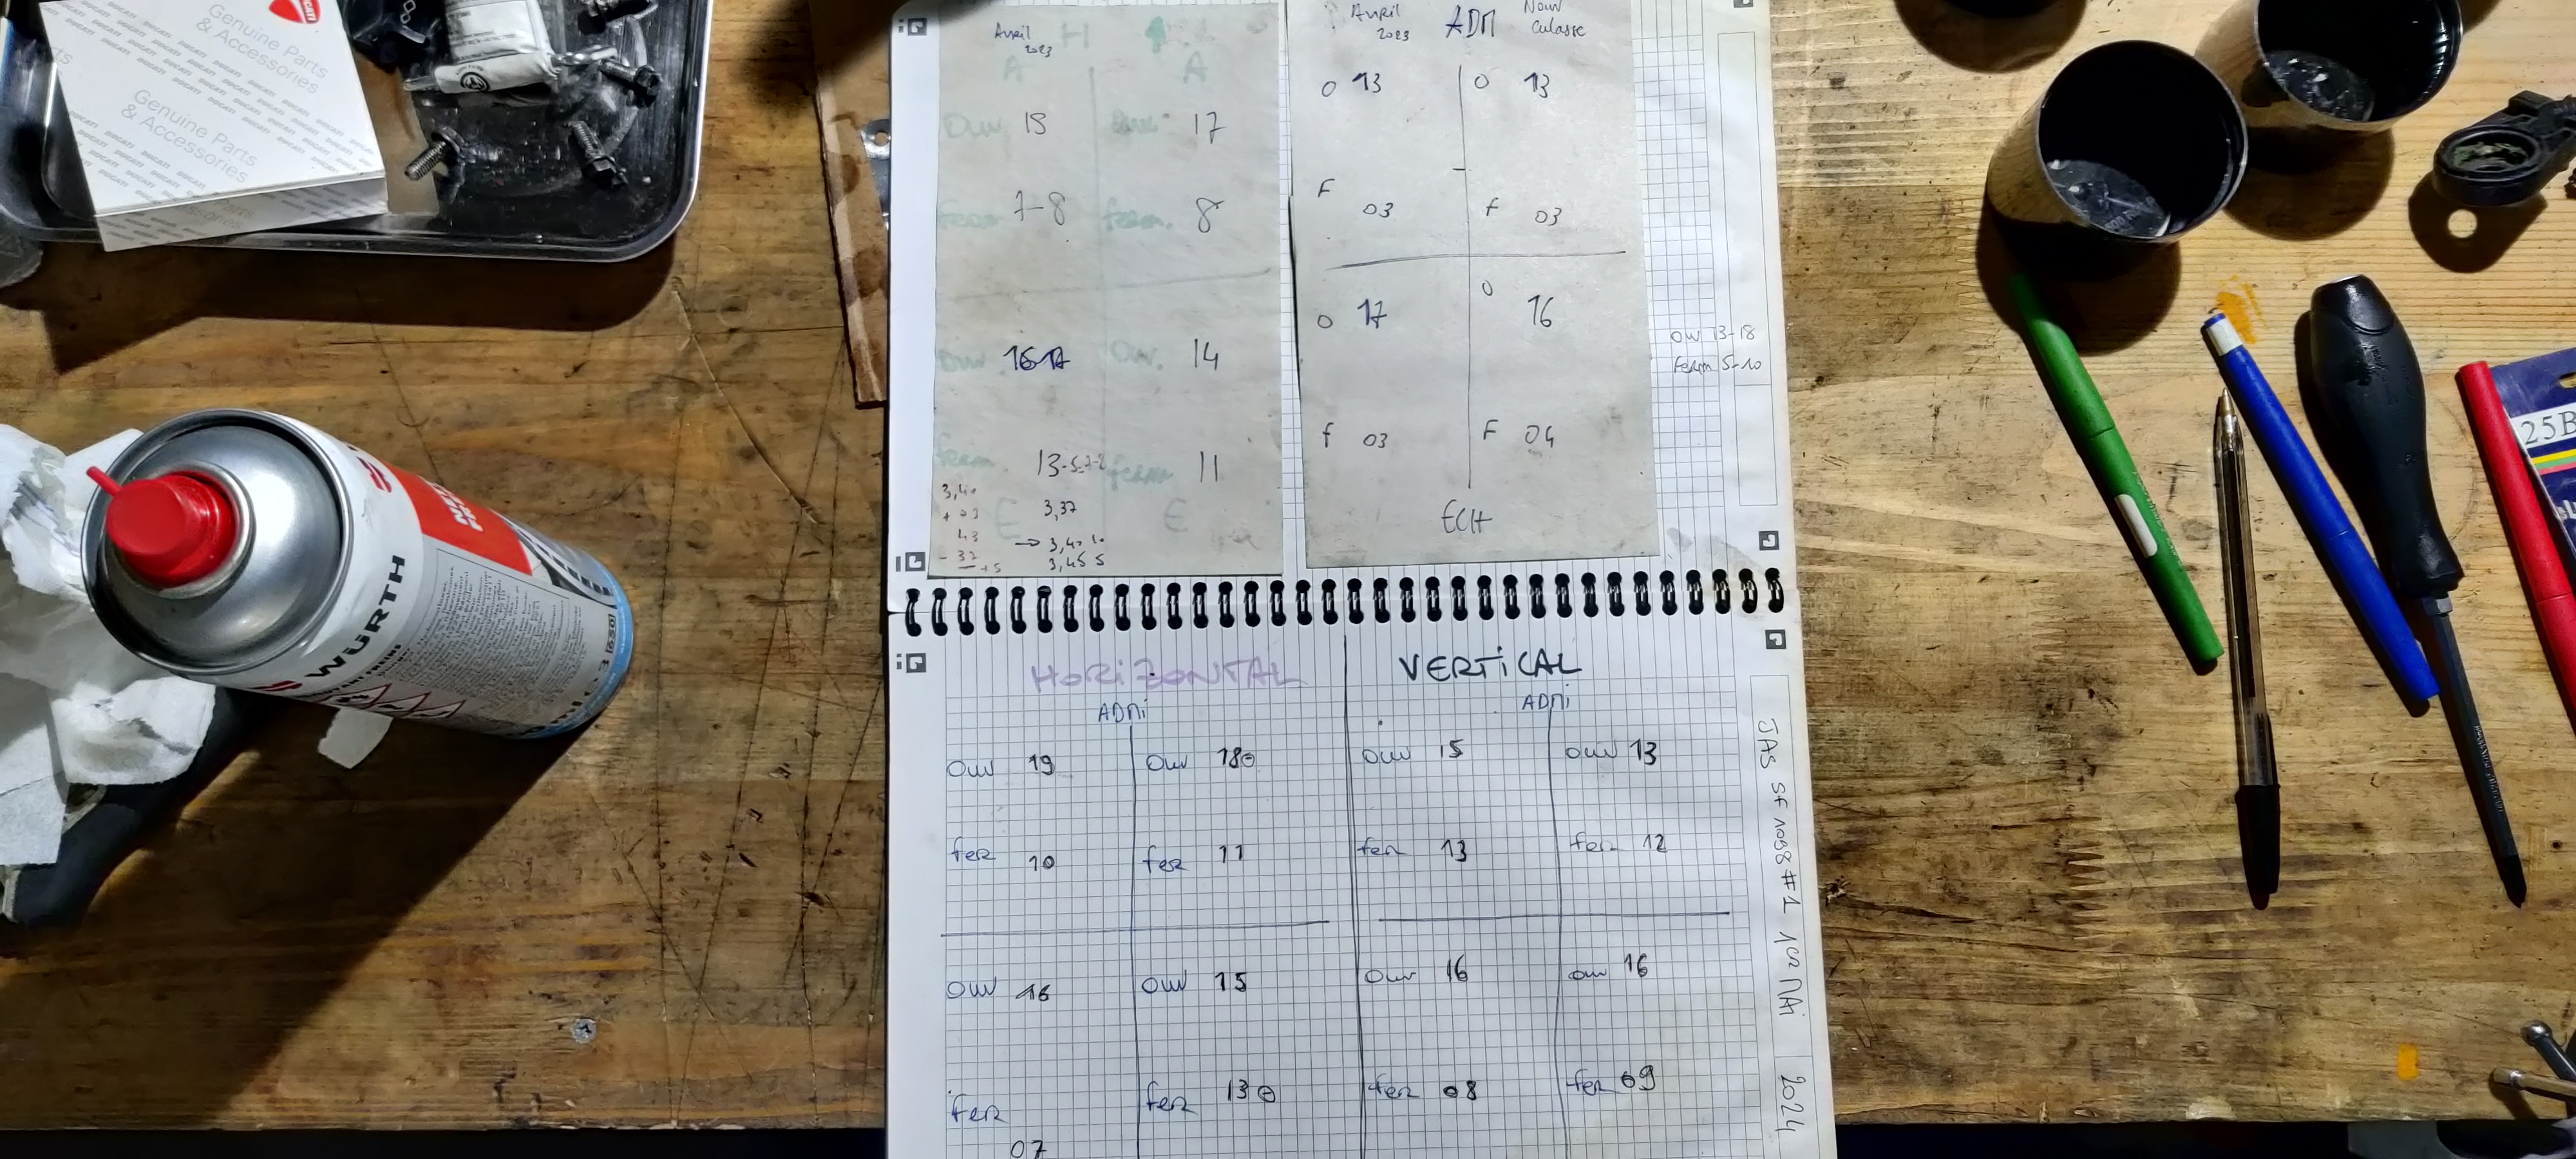 Genuine Parts
& Accessories
DUCATI
Genuine Parts
& Accessories
WÜRTH
Avril
2023
H
A A
Ouv 15 Ouv. 17
ferm 7-8 ferm. 8
Ouv Ouv. 14
ferm. ferm 11
3,37
E E
Avril
2023
ADM
Nouv
Culasse
O 13 O 13
F 03 F 03
O 17 O 16
F 03 F 04
ECH
Ouv 13-18
Ferm 5-10
HORIZONTAL VERTICAL
ADMI ADMI
Ouv 19 Ouv 18 Ouv 15 Ouv 13
fer 10 fer 11 fer 13 fer 12
Ouv 16 Ouv 15 Ouv 16 Ouv 16
fer 07 fer 13 fer 08 fer 09
JAS SF 1098 #1 1er MAi 2024
25B